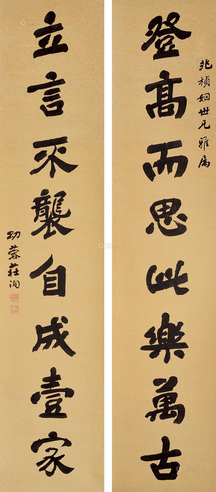 兆楨姻世兄雅屬
登高而思此樂萬古
立言不襲自成壹家